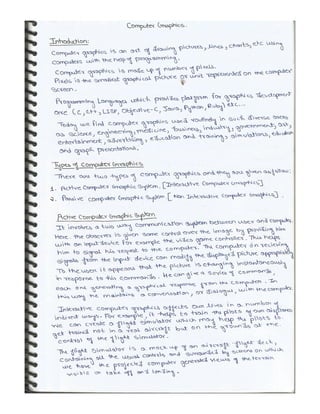 Computer Graphics.
Introduction:
Computer graphics is an art of drawing pictures, lines, charts, etc using
computers with the help of programming.
Computer graphics is made up of number of pixels.
Pixel is the smallest graphical picture or unit represented on the computer
screen.
Programming Languages which provides platform for graphics development
are (C, C++, LISP, Objective-C, Java, Python, Ruby) etc...
Today we find computer graphics used routinely in such diverse areas
as science, engineering, medicine, business, industry, government, art,
entertainment, advertising, education and training, simulations, education
and graph presentations.
Types of Computer Graphics
There are two types of computer graphics and they are given as follow:
1. Active Computer Graphic System [Interactive Computer Graphics]
2. Passive Computer Graphic System [Non Interactive Computer Graphics].
Active Computer Graphic System
It involves a two way communication system between user and computer.
Here the observer is given some control over the image by providing him
with an input device for example the video game controller. This helps
him to signal his request to the computer. The computer on recieving
signals from the input device can modify the displayed picture appropriately.
To the user it appears that the picture is changing instantaneously
in response to his commands. He can give a series of commands,
each one generating a graphical response from the computer. In
this way he maintains a conversation, or dialogue, with the computer.
Interactive computer graphics affects our lives in a number of
indirect ways. For example, it helps to train the pilots of our airplanes
We can create a flight simulator which may help the pilots to
get trained not in a real aircraft but on the grounds at the
control of the flight simulator.
The flight simulator is a mock up of an aircraft flight deck,
containing all the usual controls and surrounded by screens on which
we have the projected computer generated views of the terrain
visible on take off and landing.